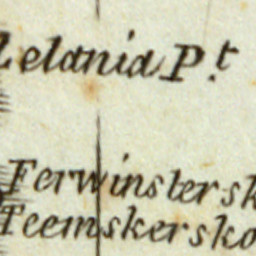 Zelania P.t
Ferwinstersk
Teemskersko